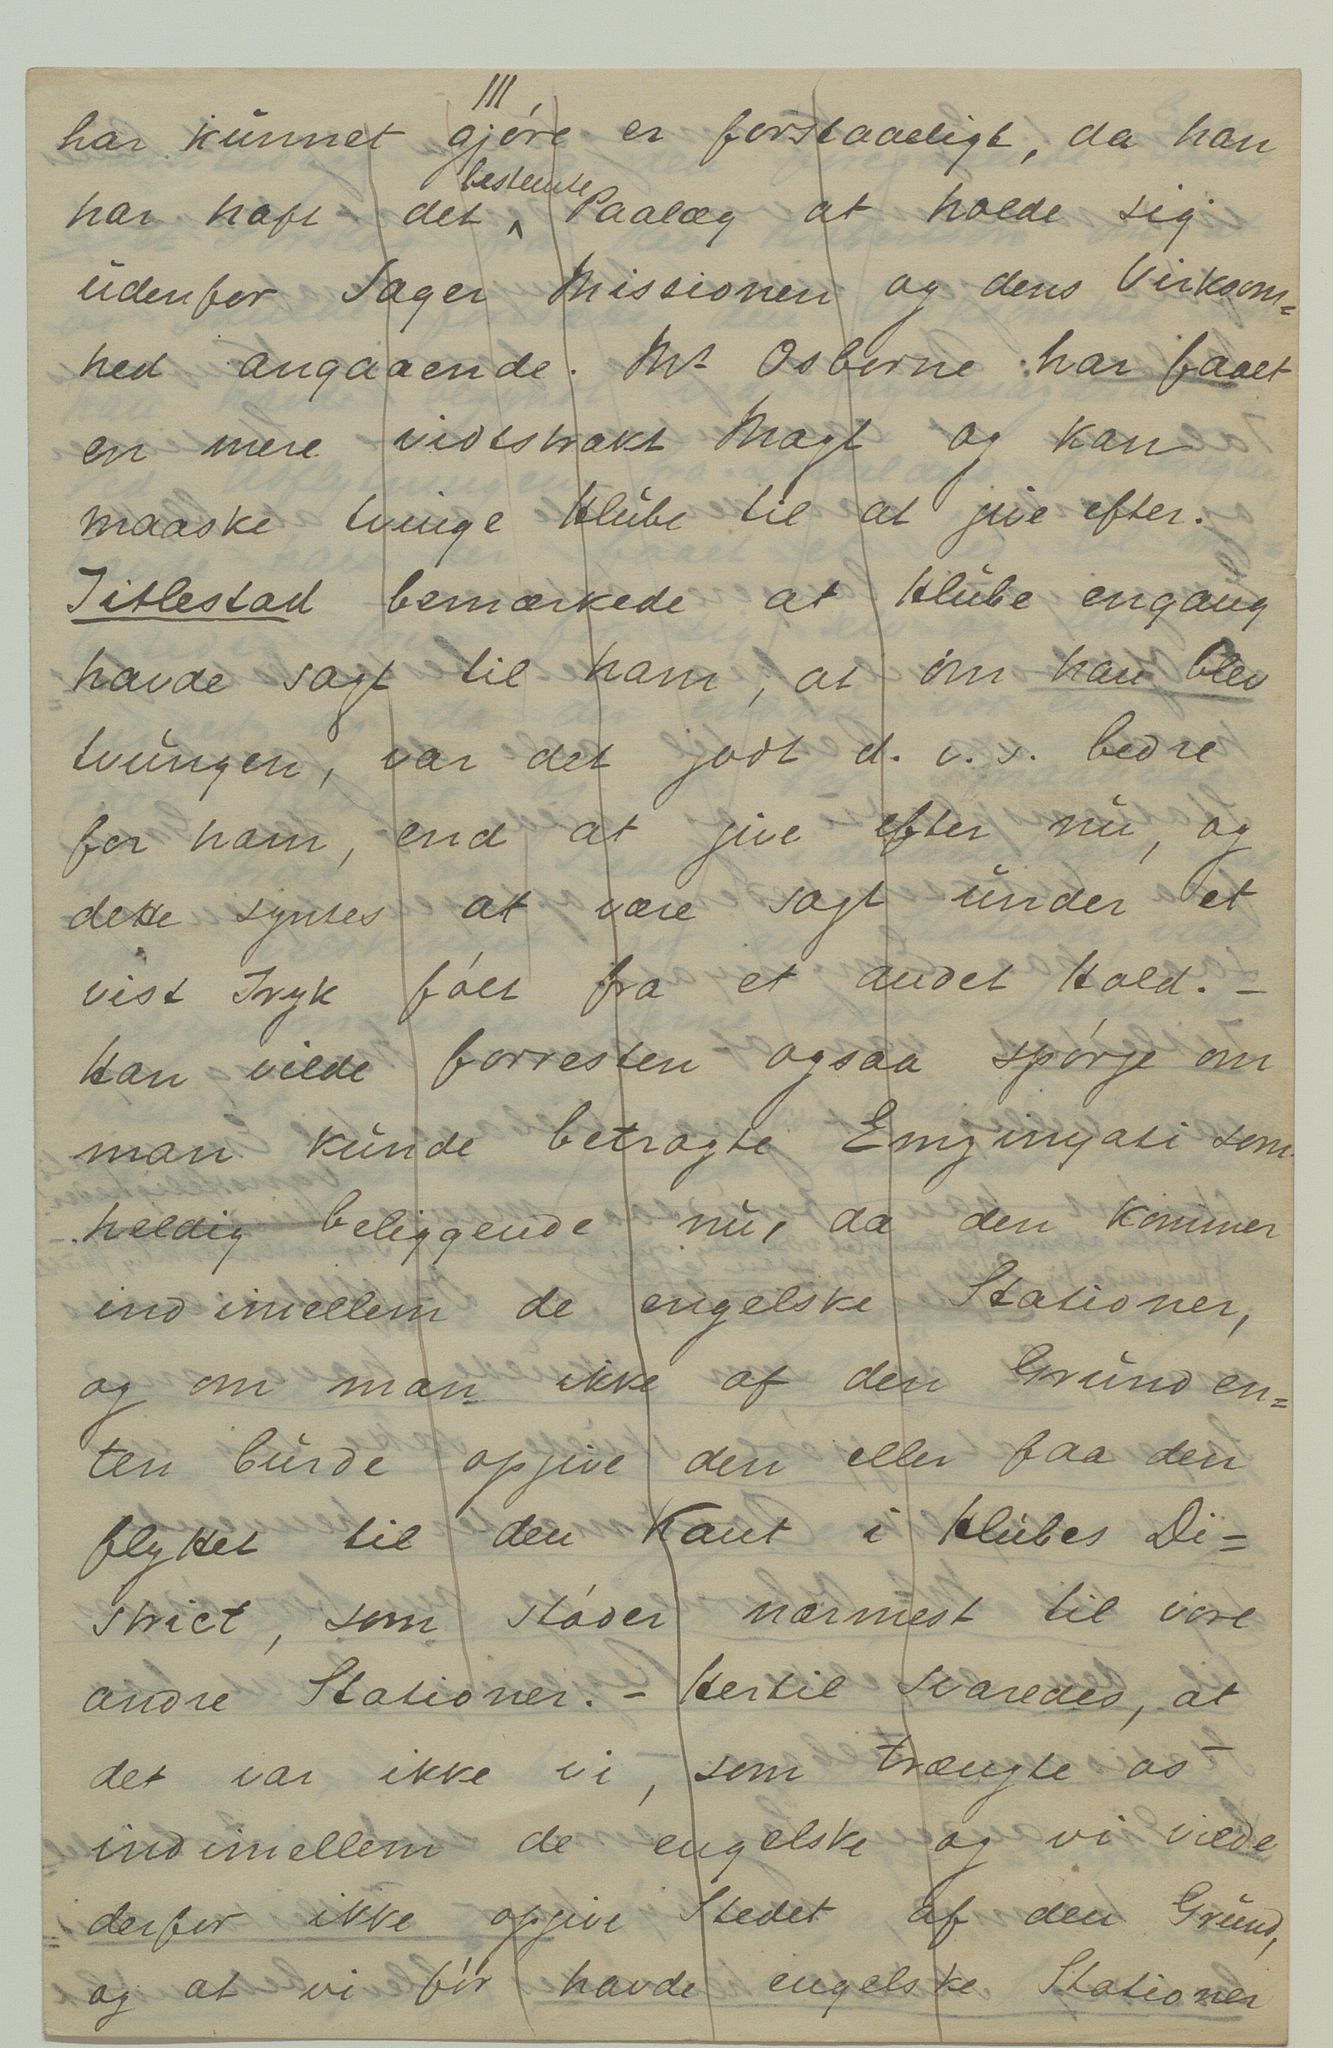 III
har kunnet gjöre er forstaaeligt, da han
har haft det bestemte Paalæg at holde sig
udenfor Sager Missionen og dens Virksom=
hed angaaende. Mr Osborne har faaet
en mere vidtstrakt Magt og kan
maaske tvinge Hlube til at give efter.
Titlestad bemærkede at Hlube engang
havde sagt til ham, at om han blev
tvungen, var det godt d. v. s. bedre
for ham, end at give efter nu, og
dette syntes at være sagt under et
vist Tryk fölt fra et andet Hold. -
Han vilde forresten ogsaa spörge om
man kunde betragte Emzinyati som
heldig beliggende nu, da den kommer
ind imellem de engelske Stationer,
og om man ikke af den Grund en=
ten burde opgive den eller faa den
flyttet til den Kant i Hlubes Di=
strict, som stöder nærmest til vore
andre Stationer. - Hertil svaredes, at
det var ikke vi, som trængte os
ind imellem de engelske og vi vilde
derfor ikke opgive Stedet af den Grund,
og at vi för havde engelske Stationer